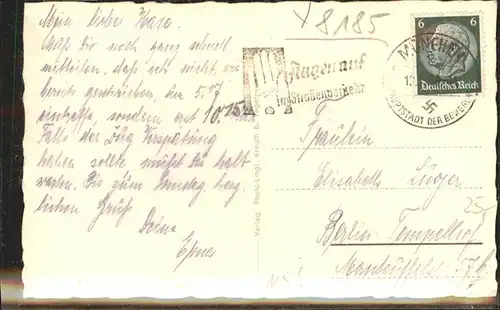 Mein lieber Hase.
Muß Dir noch ganz schnell
mitteilen, daß ich nicht, wie
bereits geschrieben den 5.17
eintreffe, sondern erst 10.15
Falls der Zug Verspätung
haben sollte mußt Du halt
warten. Bis zum Samstag herz-
lichen Gruß Deine
X 8185
Augen auf
im Straßenverkehr
MÜNCHEN
HAUPTSTADT DER BEWEGUNG
6 6
Deutsches Reich
Fräulein
Elisabeth
Berlin Tempelhof
57b
25
Verlag